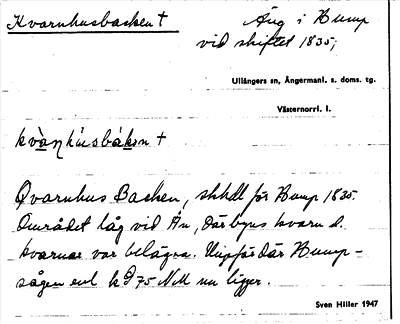 Kvarnhusbacken †
Äng i Hump
vid skiftet 1835;
Ullångers sn, Ångermanl. s. doms. tg.
Västernorrl. l.
kvà̱ṇhúsbàkən †
Qvarnhus Backen, skhdl för Hump 1835.
Området låg vid Ån, där byns kvarn l.
kvarnar var belägna. Ungefär där Hump-
sågen enl. k 75 NM nu ligger.
Sven Hiller 1947